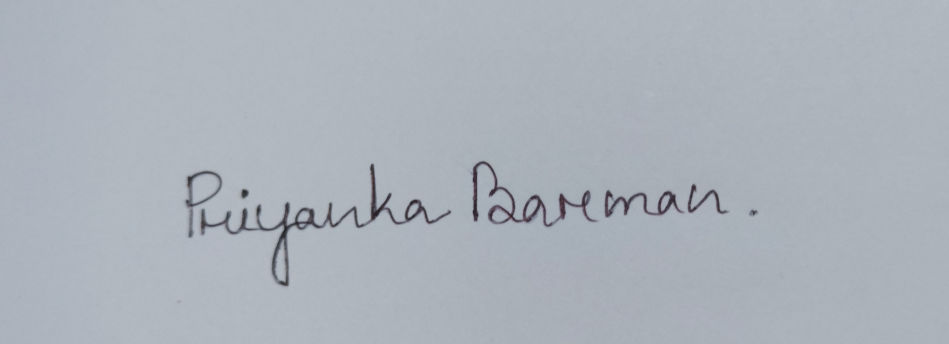 Priyanka Bareman.